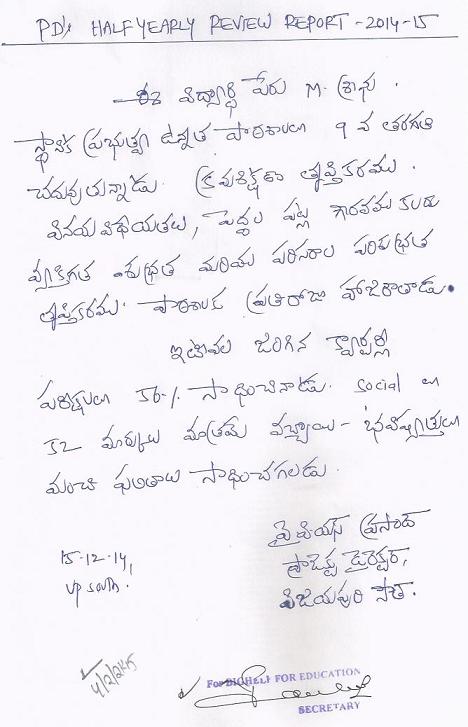 PD's HALF YEARLY REVIEW REPORT - 2014-15
ఈ విద్యార్థి పేరు M. శ్రీను.
స్థానిక ప్రభుత్వ ఉన్నత పాఠశాలలో 9 వ తరగతి
చదువుతున్నాడు. క్రమశిక్షణ తృప్తికరము.
వినయ విధేయతలు, పెద్దల పట్ల గౌరవము కలదు
వ్యక్తిగత శుభ్రత మరియు పరిసరాల పరిశుభ్రత
తృప్తికరము. పాఠశాలకు ప్రతిరోజు హాజరౌతాడు.
ఇటీవల జరిగిన క్వార్టర్లీ
పరీక్షలలో 56% సాధించినాడు. Social లో
52 మార్కులు మాత్రమే వచ్చాయి - భవిష్యత్తులో
మంచి ఫలితాలు సాధించగలడు.
వై పియస్ ప్రసాద్
ప్రాజెక్టు డైరెక్టర్,
విజయపురి సౌత్.
15-12-14,
VP South.
For BIGHELP FOR EDUCATION
SECRETARY